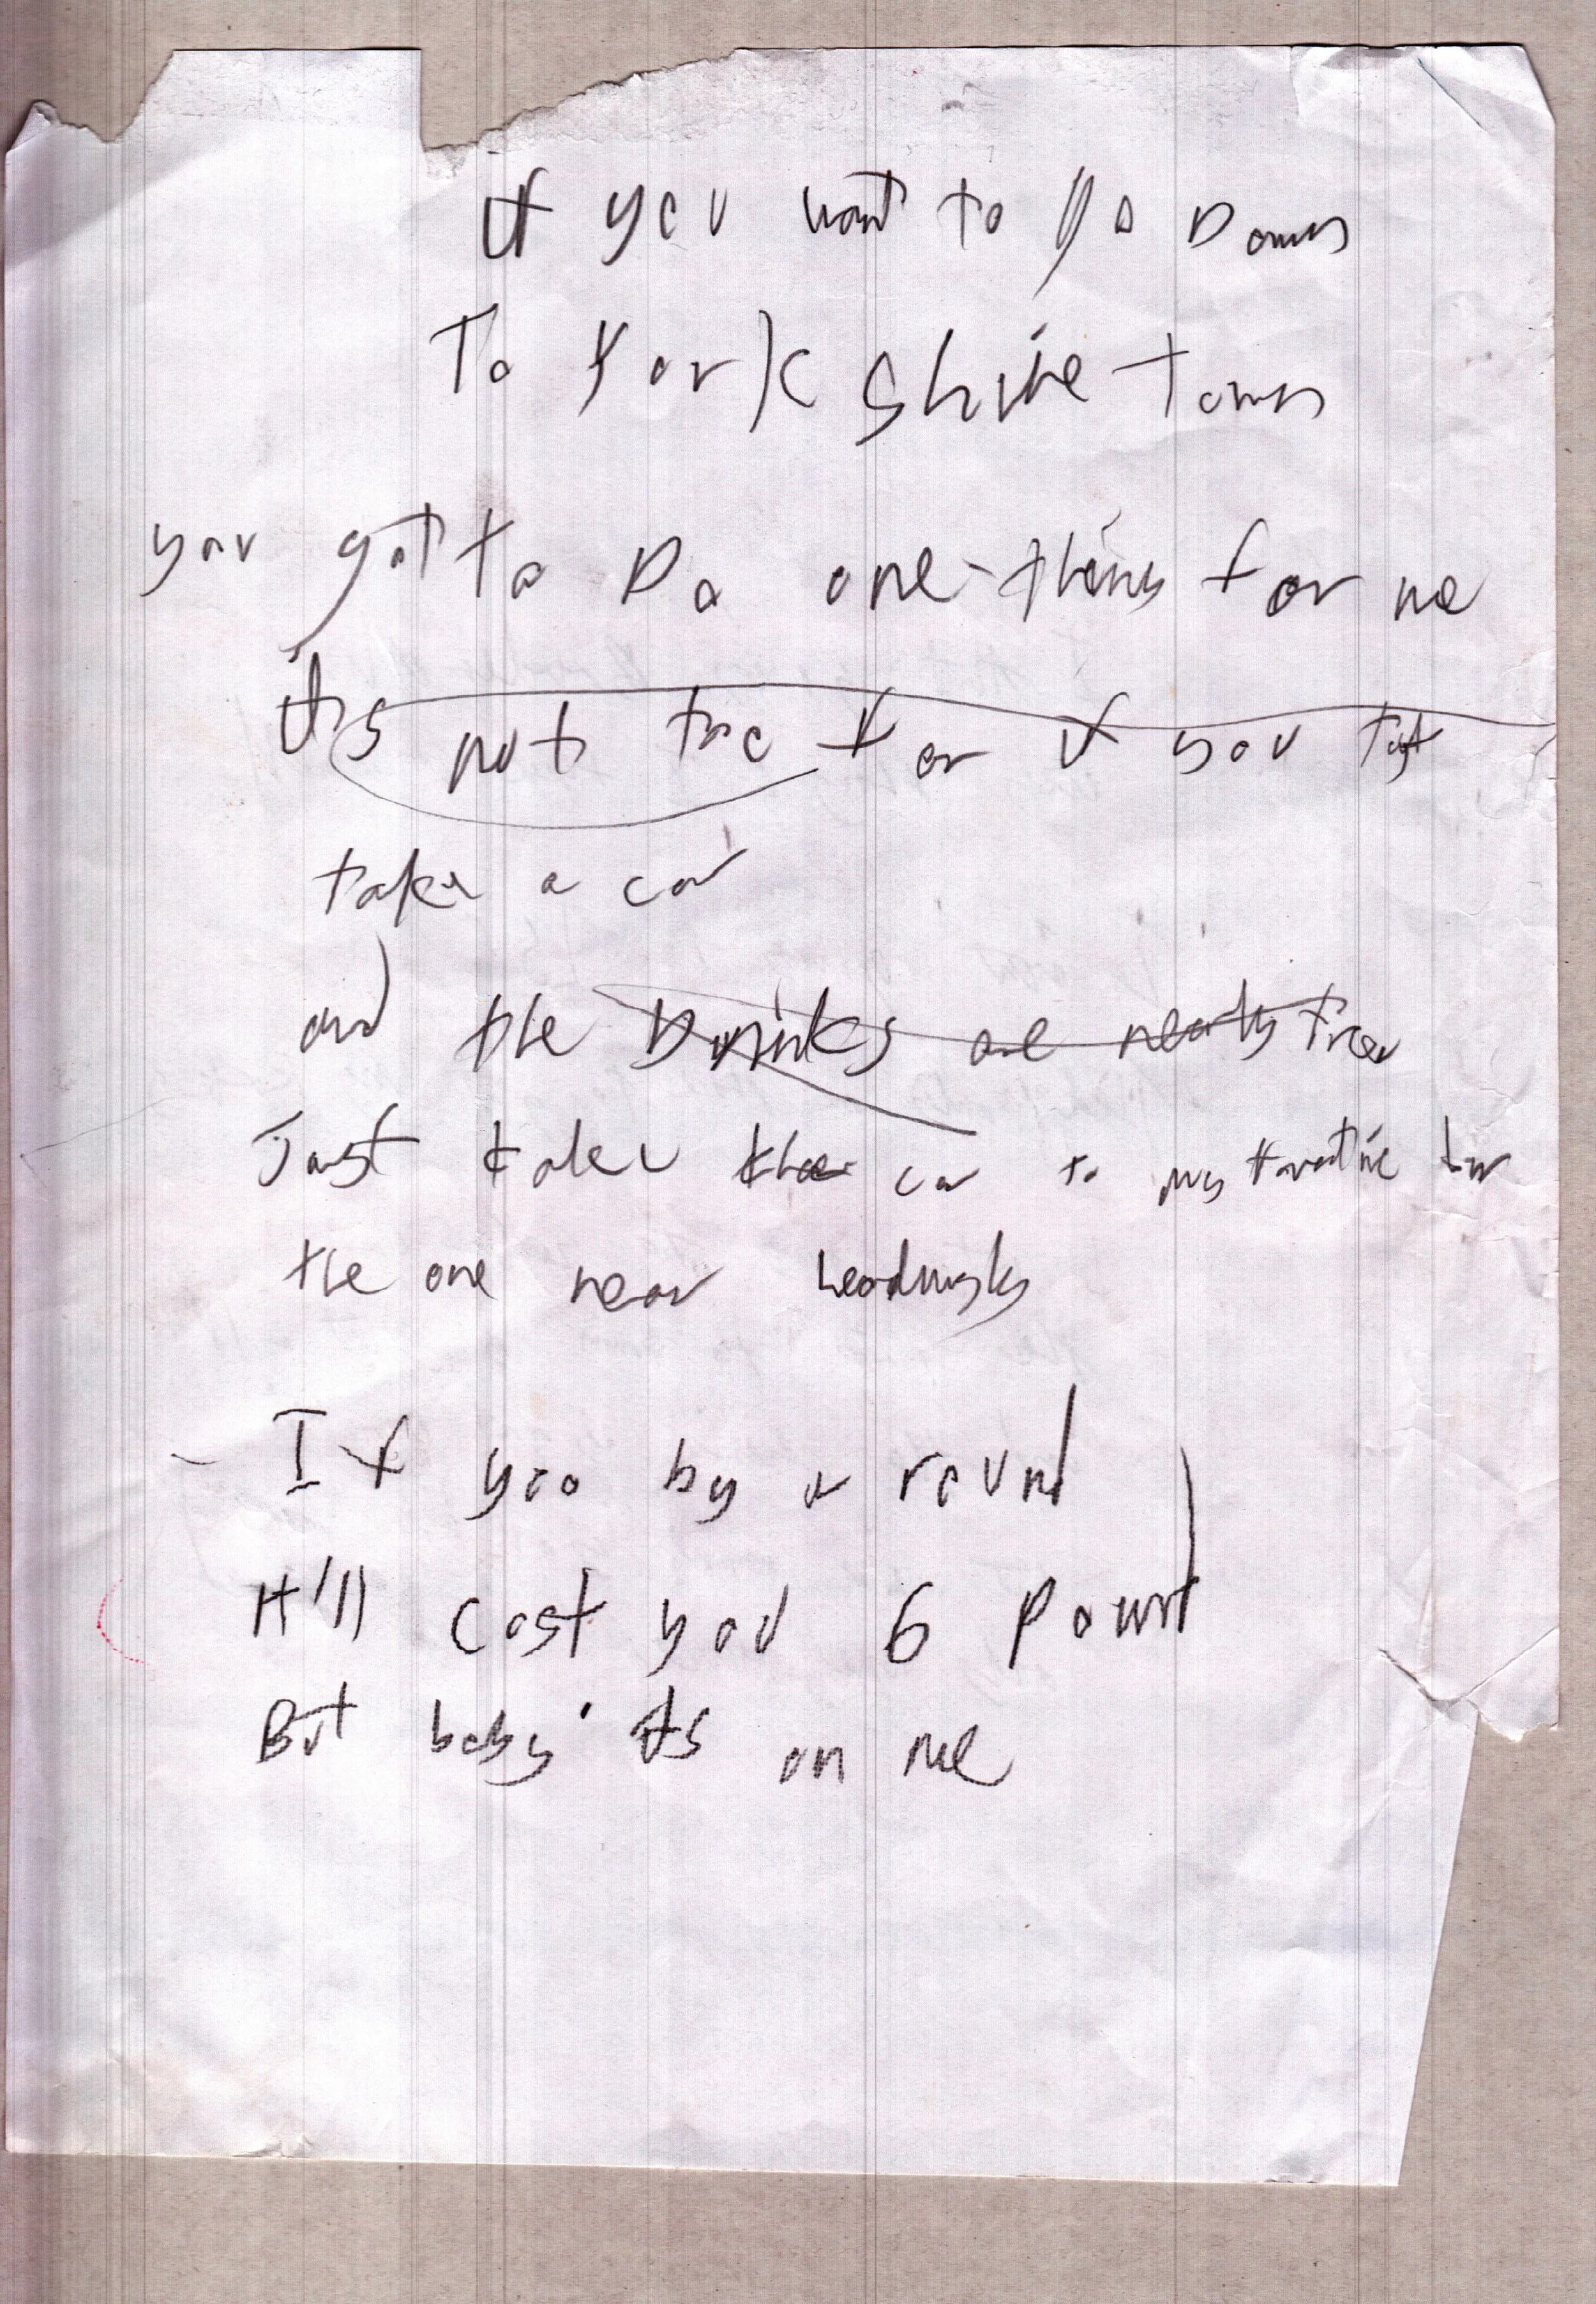 If you want to go Down
To York shire town
you got to Do one thing for me
its not too far if you just
take a car
and the Drinks are nearly free
Just take the car to my favourite bar
the one near Headingley
- If you by a round
It'll cost you 6 Pound
But baby its on me